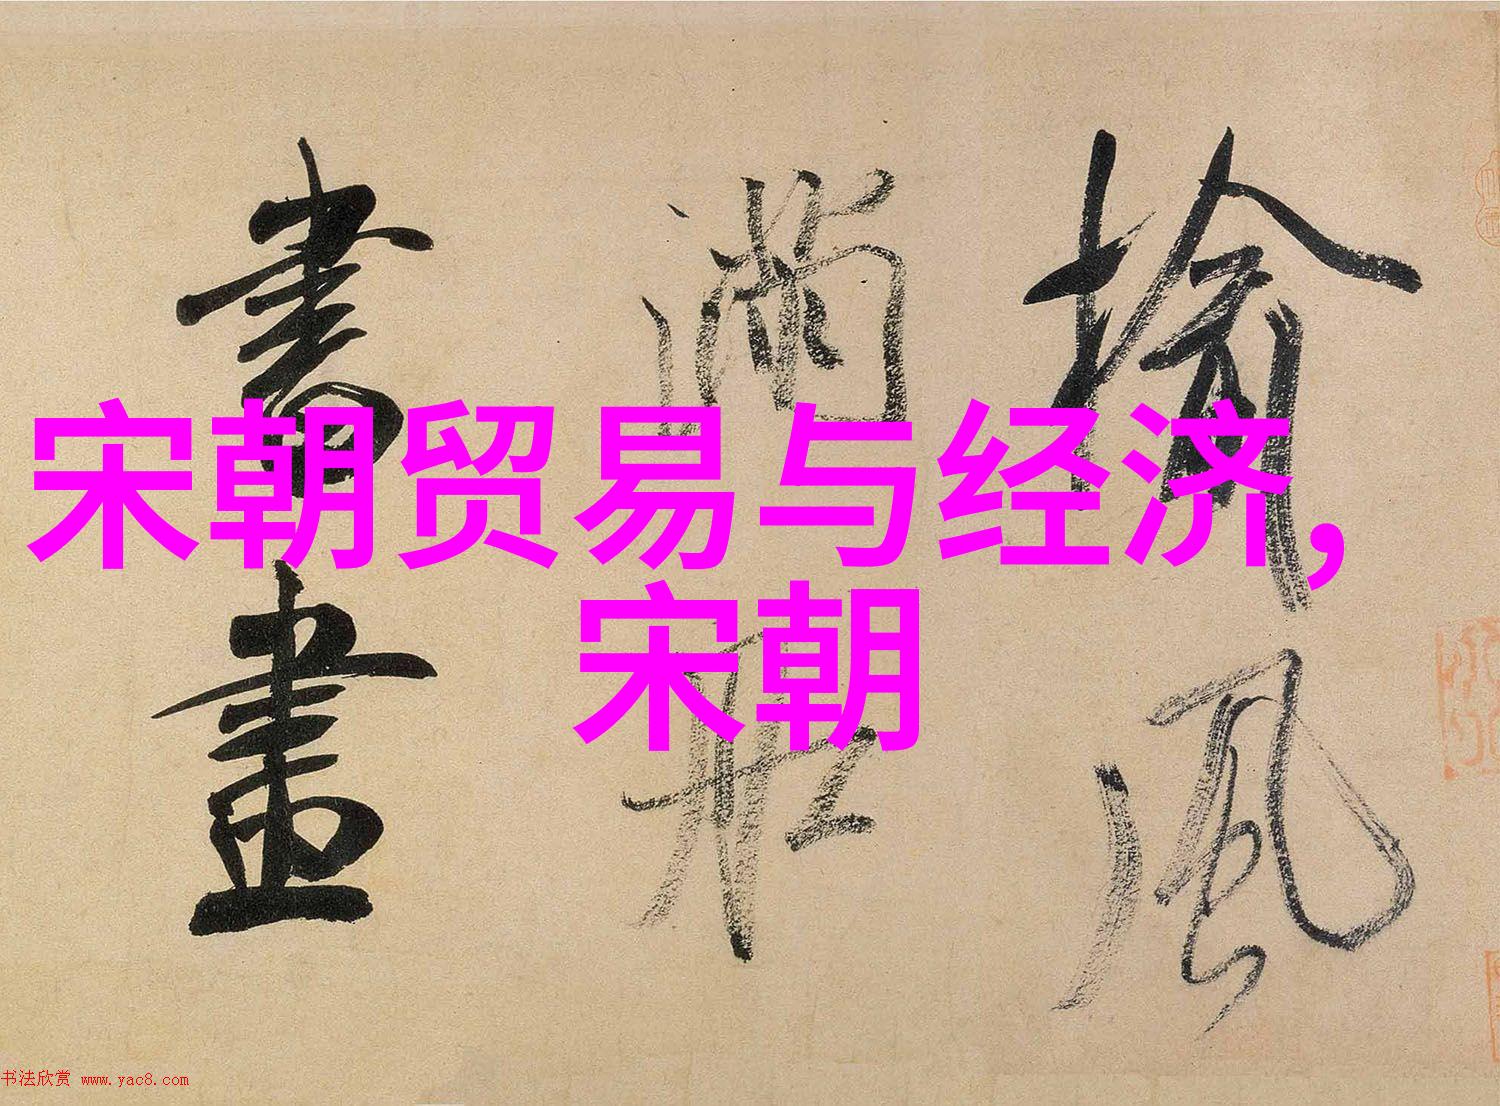 宋朝贸易与经济,
宋朝
榆風
滿船
書畫
书法欣赏 www.yac8.com